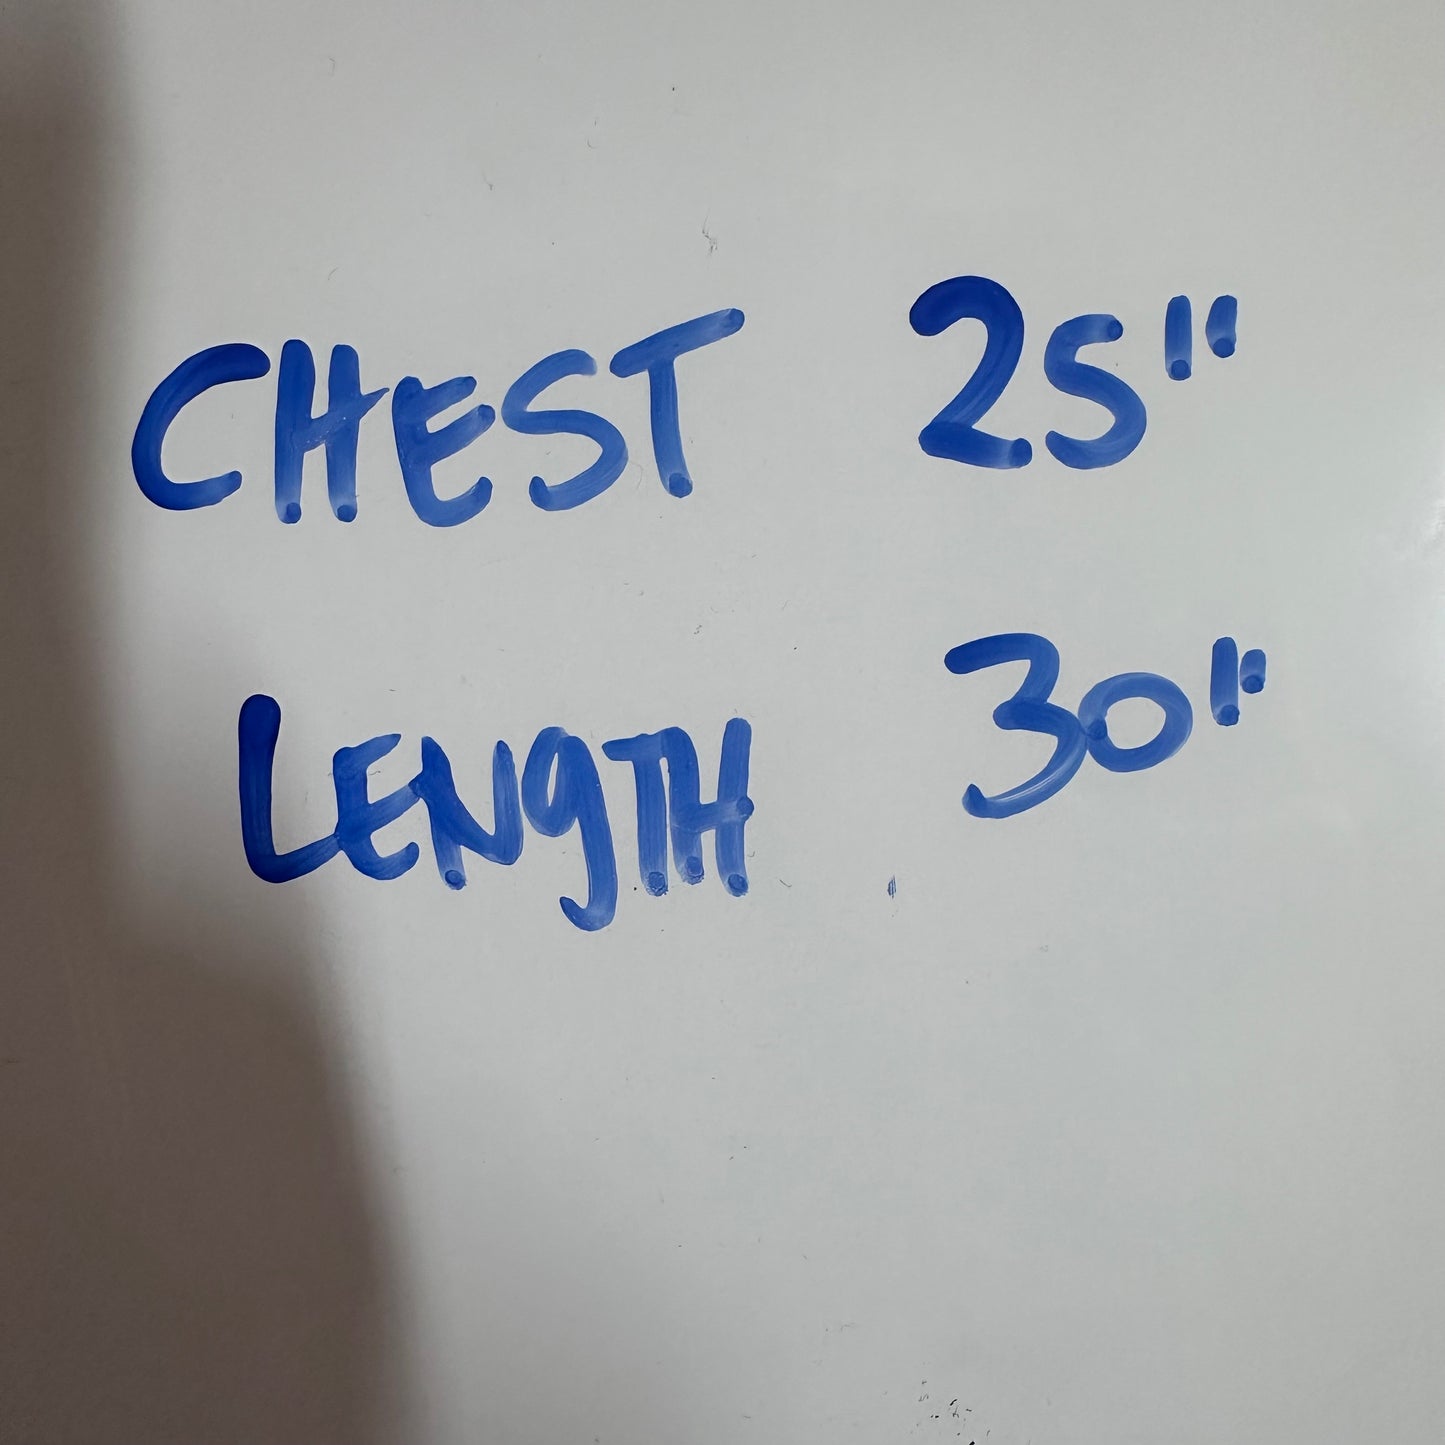 CHEST 25"
LENgTH 30"